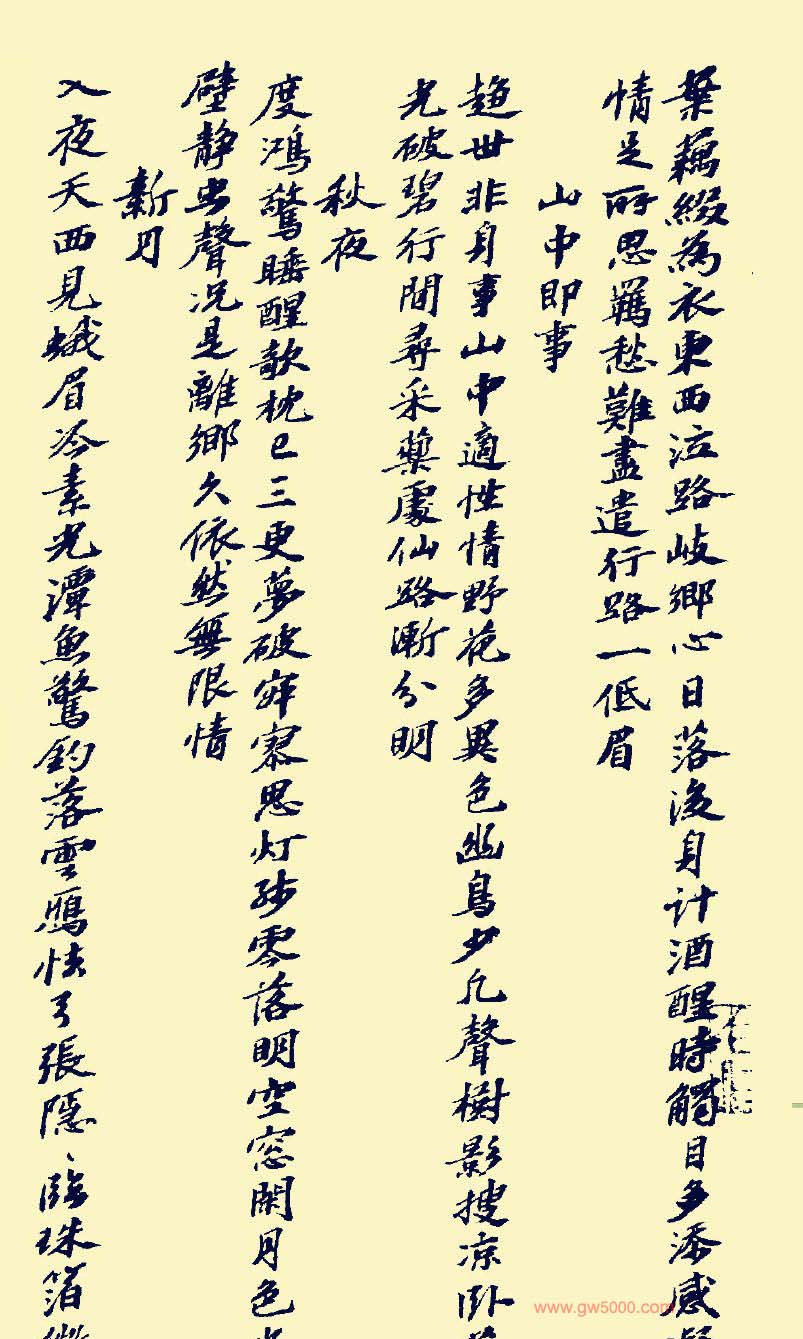 葉藕綴為衣東西泣路岐鄉心日落後身計酒醒時觸目多添感
情足所思羈愁難盡遣行路一低眉
山中即事
趨世非身事山中適性情野花多異色幽鳥少凡聲樹影搜涼臥
光破碧行閒尋采藥處仙路漸分明
秋夜
度鴻驚睡醒欹枕已三更夢破寂寥思灯殘零落明空窓閑月色
壁静虫聲况是離鄉久依然無限情
新月
入夜天西見蛾眉冷素光潭魚驚釣落雲鴈怯弓張隱、臨珠箔微
www.gw5000.com